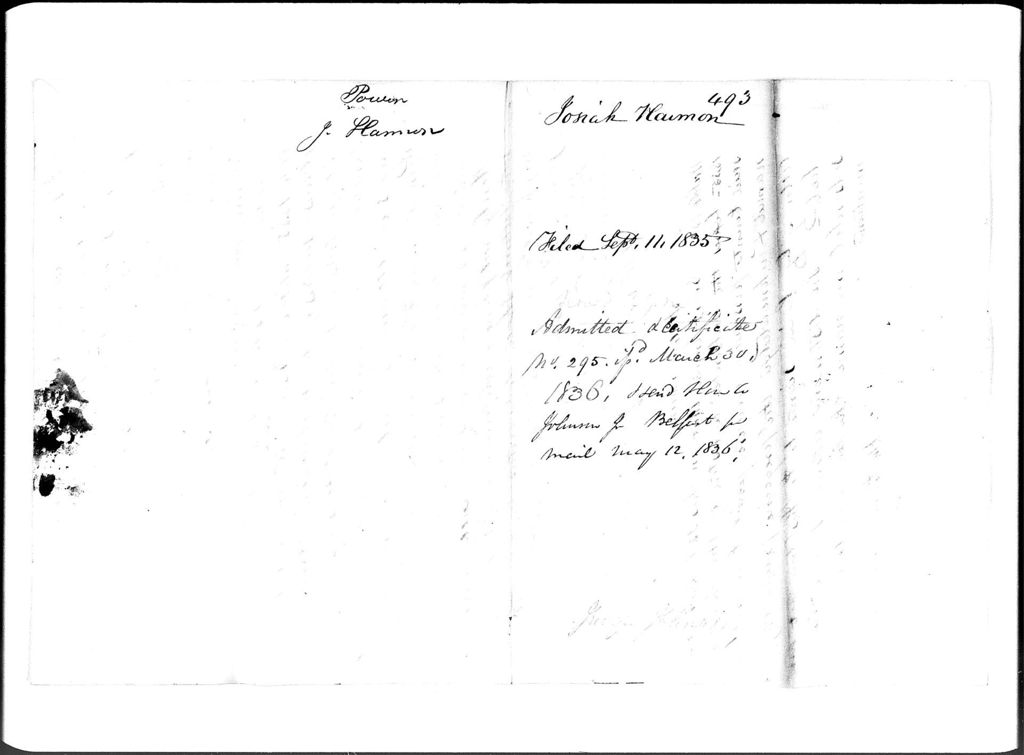 Power
J. Harmon
493
Josiah Harmon
Filed Sept. 11, 1835
Admitted & certificate
No. 295. isd. March 30,
1836, & send Hon
Johnson Jr Belfast pr
mail May 12, 1836.